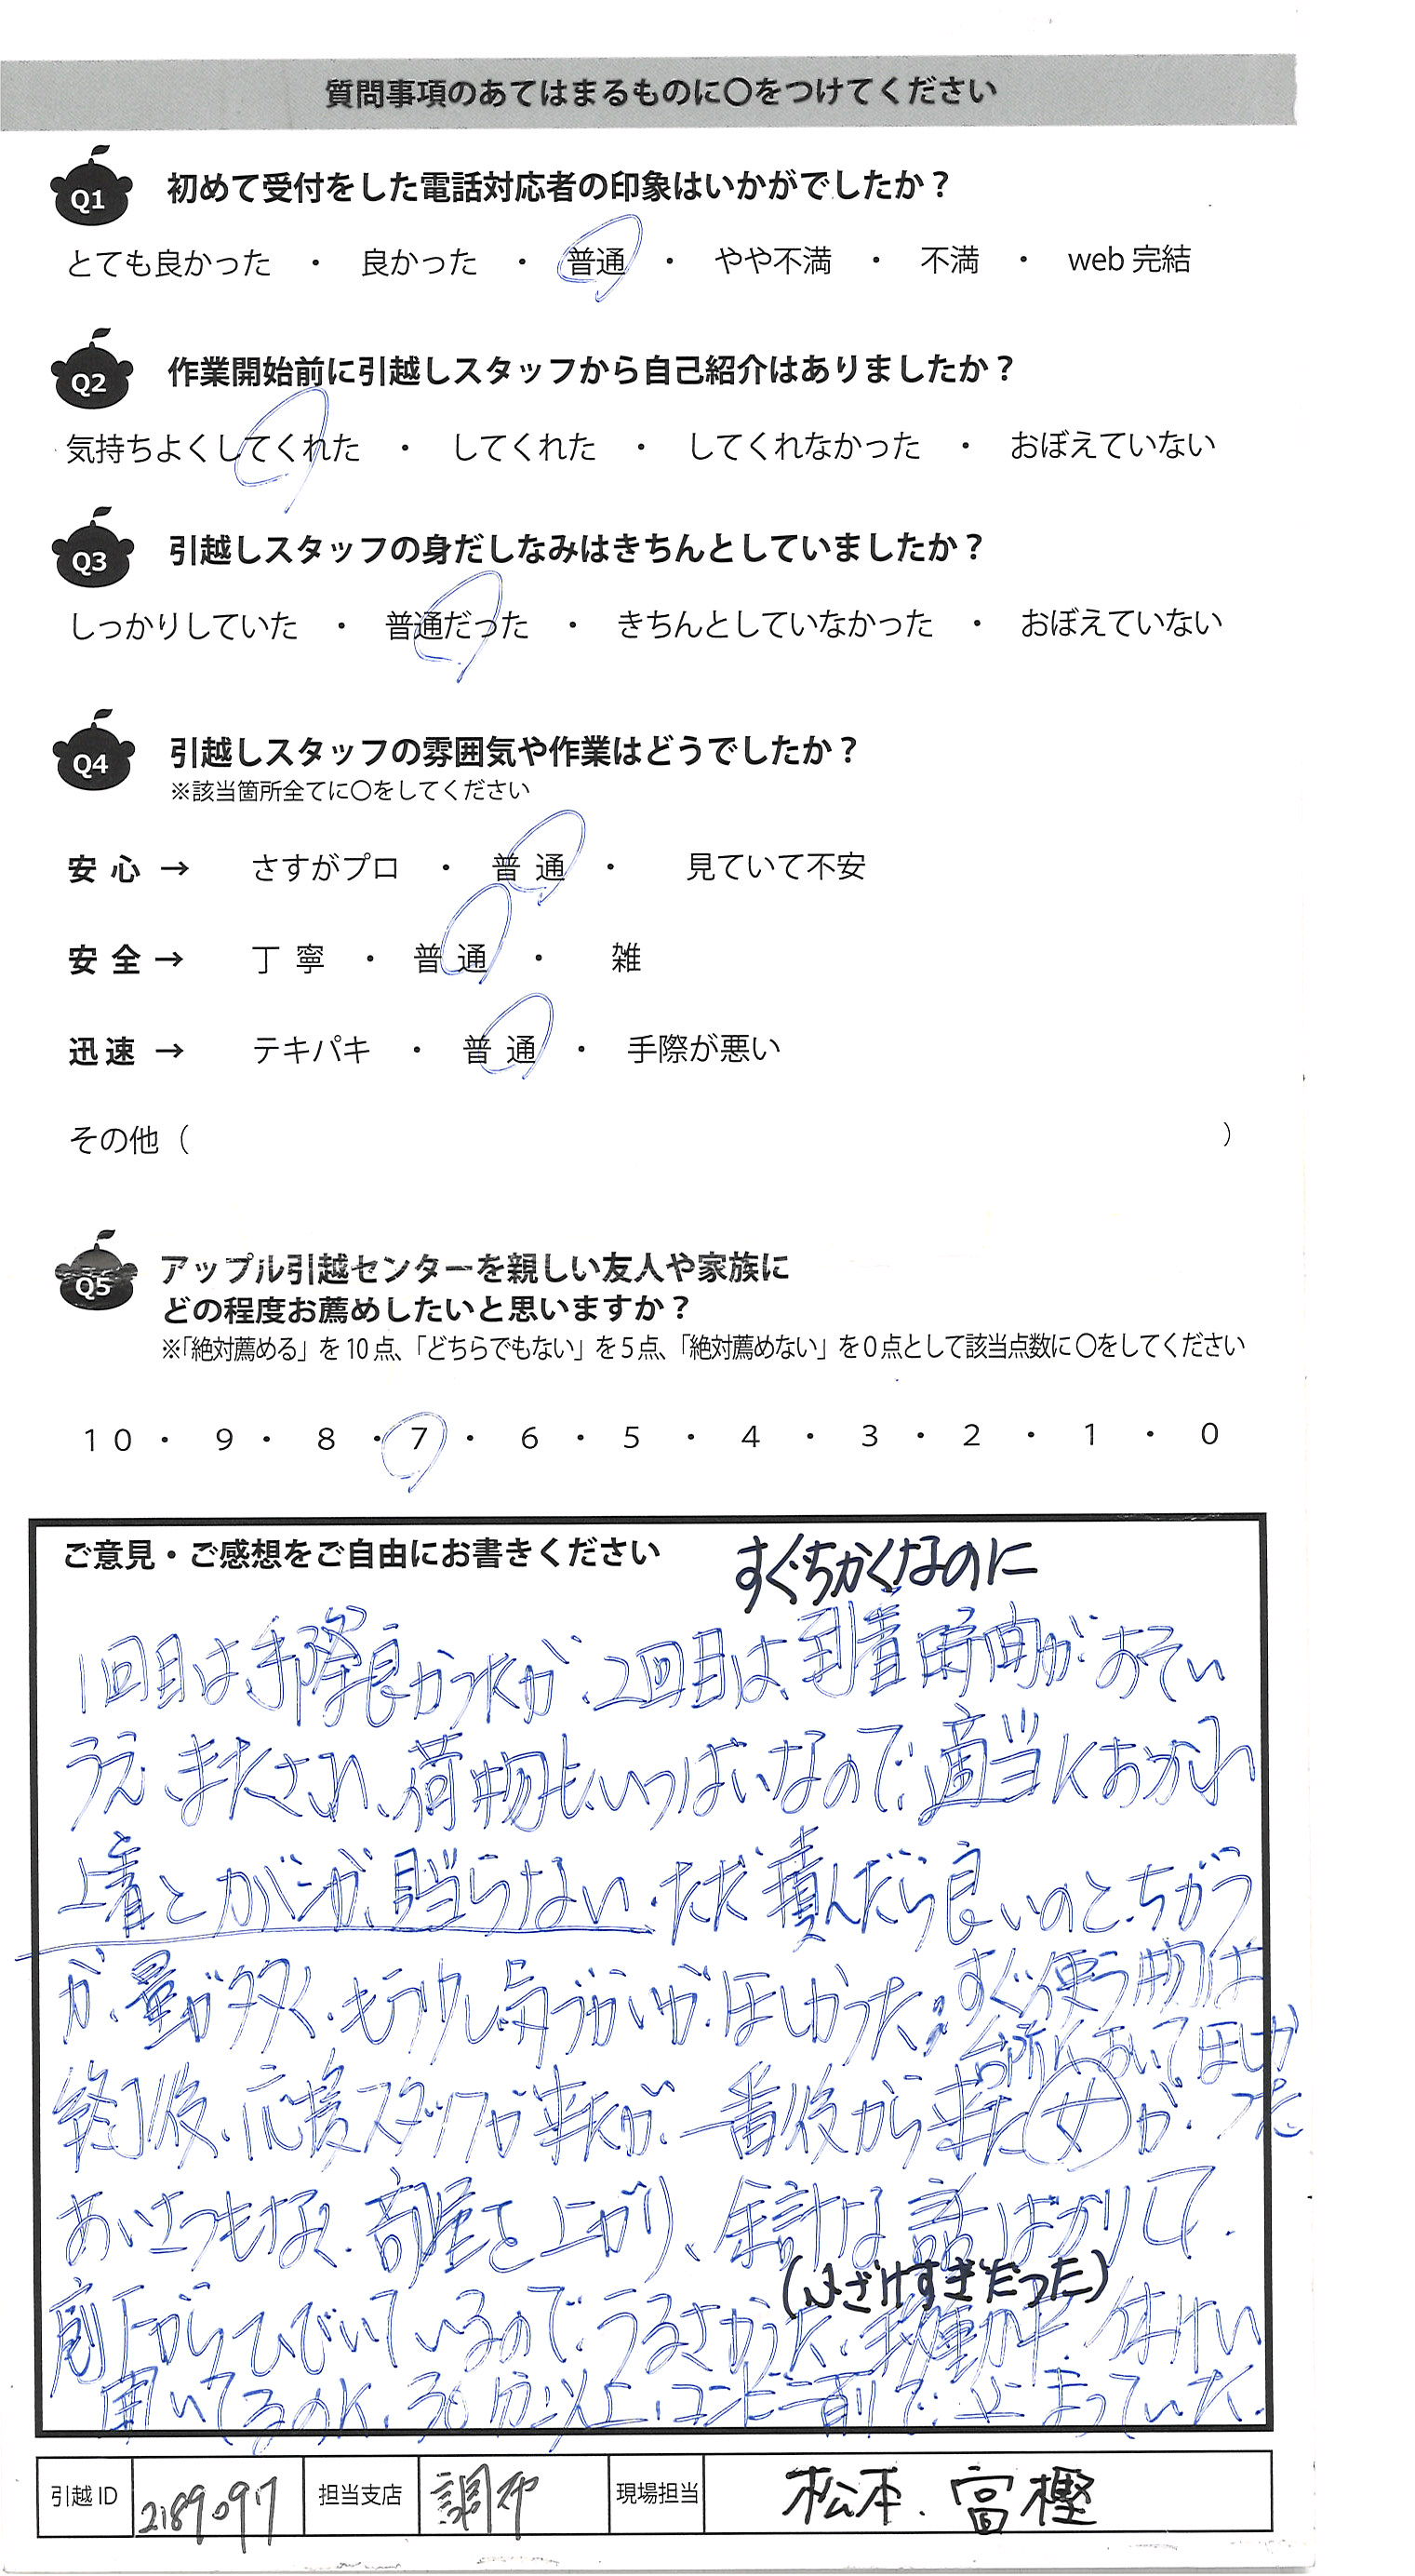 質問事項のあてはまるものに〇をつけてください
Q1 初めて受付をした電話対応者の印象はいかがでしたか？
とても良かった ・ 良かった ・ 普通 ・ やや不満 ・ 不満 ・ web 完結
Q2 作業開始前に引越しスタッフから自己紹介はありましたか？
気持ちよくしてくれた ・ してくれた ・ してくれなかった ・ おぼえていない
Q3 引越しスタッフの身だしなみはきちんとしていましたか？
しっかりしていた ・ 普通だった ・ きちんとしていなかった ・ おぼえていない
Q4 引越しスタッフの雰囲気や作業はどうでしたか？
※該当箇所全てに〇をしてください
安 心 → さすがプロ ・ 普 通 ・ 見ていて不安
安 全 → 丁 寧 ・ 普 通 ・ 雑
迅 速 → テキパキ ・ 普 通 ・ 手際が悪い
その他（ ）
Q5 アップル引越センターを親しい友人や家族に
どの程度お薦めしたいと思いますか？
※「絶対薦める」を 10 点、「どちらでもない」を 5 点、「絶対薦めない」を 0 点として該当点数に 〇をしてください
10 ・ 9 ・ 8 ・ 7 ・ 6 ・ 5 ・ 4 ・ 3 ・ 2 ・ 1 ・ 0
ご意見・ご感想をご自由にお書きください
すぐちかくなのに
1回目は手際良かったが、2回目は、到着時間がおそい
うえ、またされ、荷物も、いっぱいなので、適当におかれ
上着とカバンが、見当らない、ただ積んだら良いのと、ちがう
が、量が多く、もう少し気づかいが、ほしかった。すぐ使う物は
台所においてほしかった
終了後、応援スタッフが来たが、一番後から来た女が、
あいさつもなく、部屋を上がり、余計な話ばかりして、
(ふざけすぎだった)
廊下からひびいているので、うるさかった、移動中、休けい
聞いてるのに、30分以上、コンビニ前で、止まっていた、
引越 ID 2189097 担当支店 調布 現場担当 松本、富樫